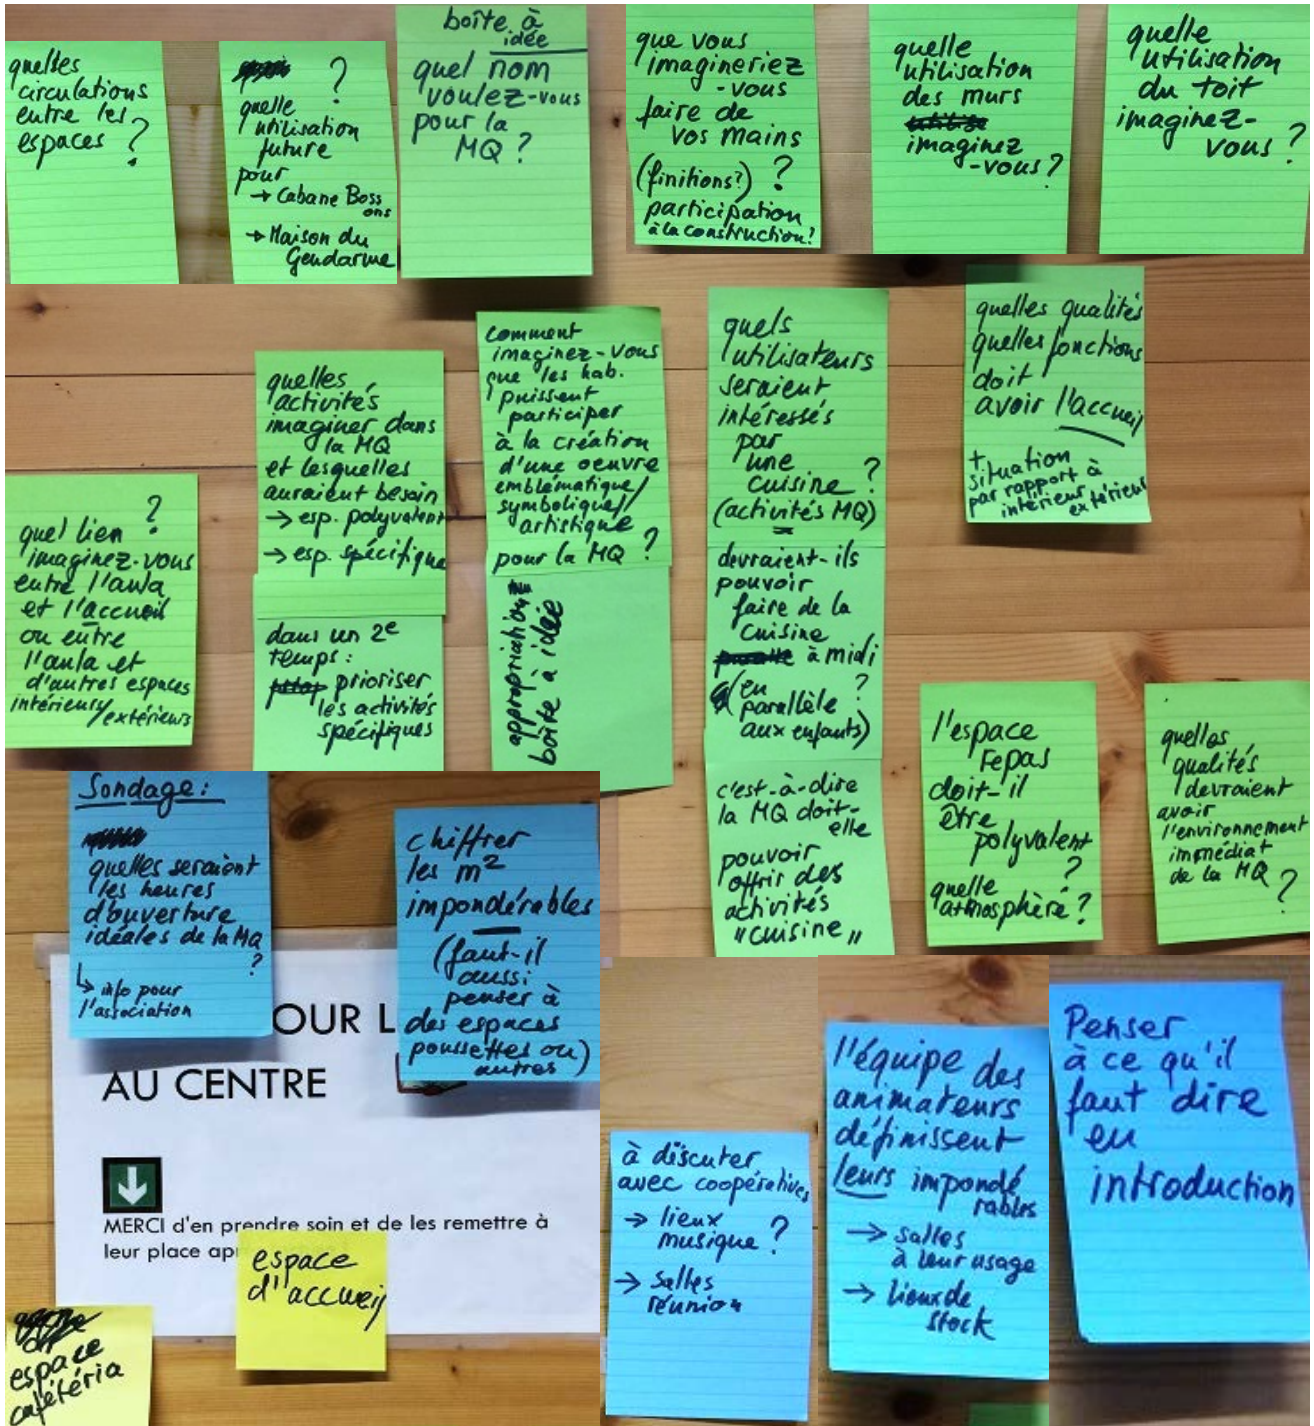 quelles
circulations
entre les
espaces ?
?
quelle
utilisation
future
pour
→ Cabane Boss
ons
→ Maison du
Gendarme
boîte à
idée
quel nom
voulez-vous
pour la
MQ ?
que vous
imagineriez
-vous
faire de
vos mains
(finitions?) ?
participation
à la construction?
quelle
utilisation
des murs
imaginez
-vous?
quelle
utilisation
du toit
imaginez-
vous ?
?
quel lien
imaginez-vous
entre l'aula
et l'accueil
ou entre
l'aula et
d'autres espaces
intérieurs/extérieurs
quelles
activités
imaginer dans
la MQ
et lesquelles
auraient besoin
→ esp. polyvalent
→ esp. spécifique
dans un 2e
temps :
prioriser
les activités
spécifiques
comment
imaginez-vous
que les hab.
puissent
participer
à la création
d'une oeuvre
emblématique/
symbolique/
artistique
pour la MQ ?
appropriation
boîte à idée
quels
utilisateurs
seraient
intéressés
par
une
cuisine ?
(activités MQ)
devraient-ils
pouvoir
faire de la
cuisine
à midi
(en ?
parallèle
aux enfants)
c'est-à-dire
la MQ doit-
elle
pouvoir
offrir des
activités
"cuisine"
quelles qualités
quelles fonctions
doit
avoir l'accueil
+
situation
par rapport à
intérieur extérieur
l'espace
Fepas
doit-il
être
polyvalent
?
quelle
atmosphère ?
quelles
qualités
devraient
avoir
l'environnement
immédiat
de la MQ
?
Sondage :
quelles seraient
les heures
d'ouverture
idéales de la MQ
?
↳ info pour
l'association
chiffrer
les m²
impondérables
(faut-il
aussi
penser à
des espaces
poussettes ou)
autres
OUR L
AU CENTRE
MERCI d'en prendre soin et de les remettre à
leur place ap
espace
d'accueil
espace
cafétéria
à discuter
avec coopératives
→ lieux
musique ?
→ salles
réunion
l'équipe des
animateurs
définissent
leurs impondé
rables
→ salles
à leur usage
→ lieux de
stock
Penser
à ce qu'il
faut dire
en
introduction